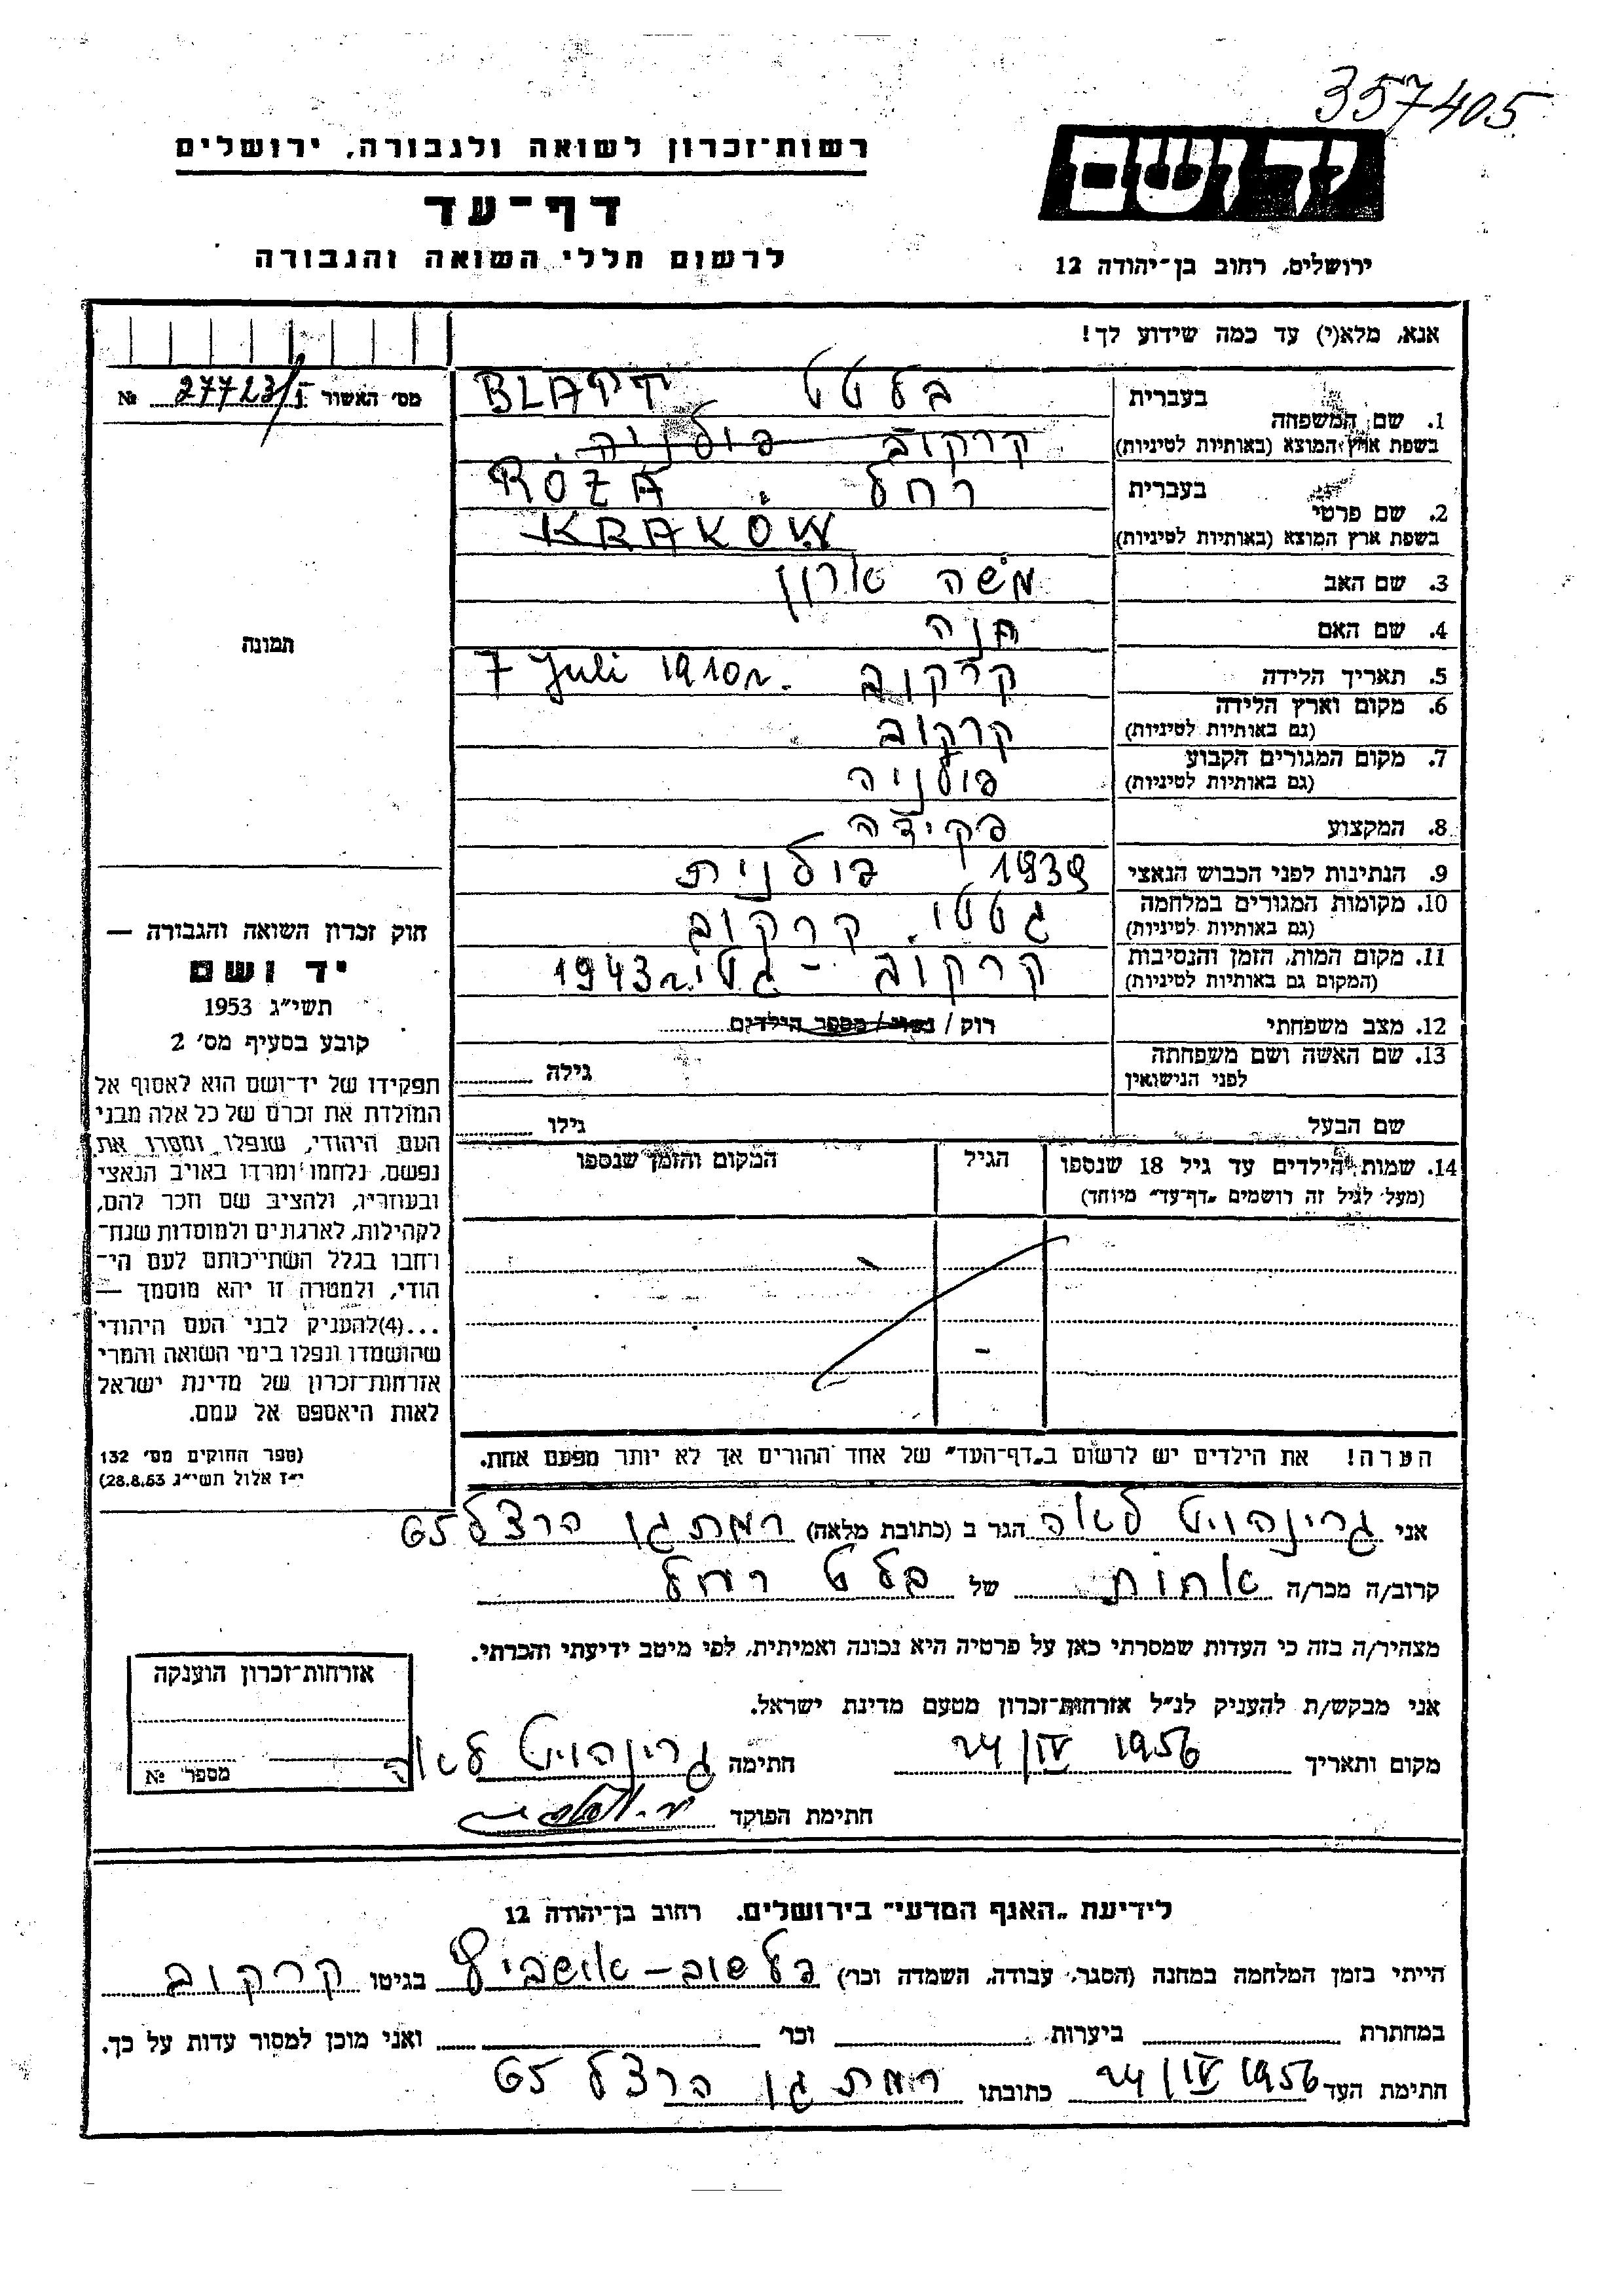 357405
יד ושם
ירושלים, רחוב בן־יהודה 12
רשות־זכרון לשואה ולגבורה, ירושלים
דף־עד
לרשום חללי השואה והגבורה
אנא, מלא(י) עד כמה שידוע לך!
מס׳ האשור 27723/I №
תמונה
חוק זכרון השואה והגבורה —
יד ושם
תשי״ג 1953
קובע בסעיף מס׳ 2
תפקידו של יד־ושם הוא לאסוף אל
המולדת את זכרם של כל אלה מבני
העם היהודי, שנפלו ומסרו את
נפשם, נלחמו ומרדו באויב הנאצי
ובעוזריו, ולהציב שם וזכר להם,
לקהילות, לארגונים ולמוסדות שנח־
רבו בגלל השתייכותם לעם הי־
הודי, ולמטרה זו יהא מוסמך —
...(4)להעניק לבני העם היהודי
שהושמדו ונפלו בימי השואה והמרי
אזרחות־זכרון של מדינת ישראל
לאות היאספם אל עמם.
(ספר החוקים מס׳ 132
י״ז אלול תשי״ג 28.8.53)
1. שם המשפחה
בעברית בלטט
בשפת ארץ המוצא (באותיות לטיניות) קרקוב פולניה
2. שם פרטי
בעברית רחל ROZA
בשפת ארץ המוצא (באותיות לטיניות) KRAKÓW
3. שם האב משה ארון
4. שם האם חנה
5. תאריך הלידה קרקוב 7 Juli 1910r.
6. מקום וארץ הלידה קרקוב
(גם באותיות לטיניות)
7. מקום המגורים הקבוע פולניה
(גם באותיות לטיניות)
8. המקצוע פקידה
9. הנתינות לפני הכבוש הנאצי 1939 פולנית
10. מקומות המגורים במלחמה גטטו קרקוב
(גם באותיות לטיניות)
11. מקום המות, הזמן והנסיבות קרקוב – 1943
(המקום גם באותיות לטיניות)
12. מצב משפחתי רוק / נשוי / מספר הילדים
13. שם האשה ושם משפחתה גילה
לפני הנישואין
שם הבעל גילו
14. שמות הילדים עד גיל 18 שנספו הגיל המקום והזמן שנספו
(מעל לגיל זה רושמים „דף־עד״ מיוחד)
הערה! את הילדים יש לרשום ב„דף־העד״ של אחד ההורים אך לא יותר מפעם אחת.
אני גרינהויט לאה הגר ב (כתובת מלאה) רמת גן הרצל 65
קרוב/ה מכר/ה אחות של בלט רחל
מצהיר/ה בזה כי העדות שמסרתי כאן על פרטיה היא נכונה ואמיתית, לפי מיטב ידיעתי והכרתי.
אני מבקש/ת להעניק לנ״ל אזרחות־זכרון מטעם מדינת ישראל.
מקום ותאריך 24/IV 1956 חתימה גרינהויט לאה
חתימת הפוקד
אזרחות־זכרון הוענקה
מספר №
לידיעת „האגף המדעי״ בירושלים. רחוב בן־יהודה 12
הייתי בזמן המלחמה במחנה (הסגר, עבודה, השמדה וכו׳) פלשוב – אושביץ בגיטו קרקוב
במחתרת ביערות וכו׳ ואני מוכן למסור עדות על כך.
חתימת העד 24/IV 1956 כתובתו רמת גן הרצל 65